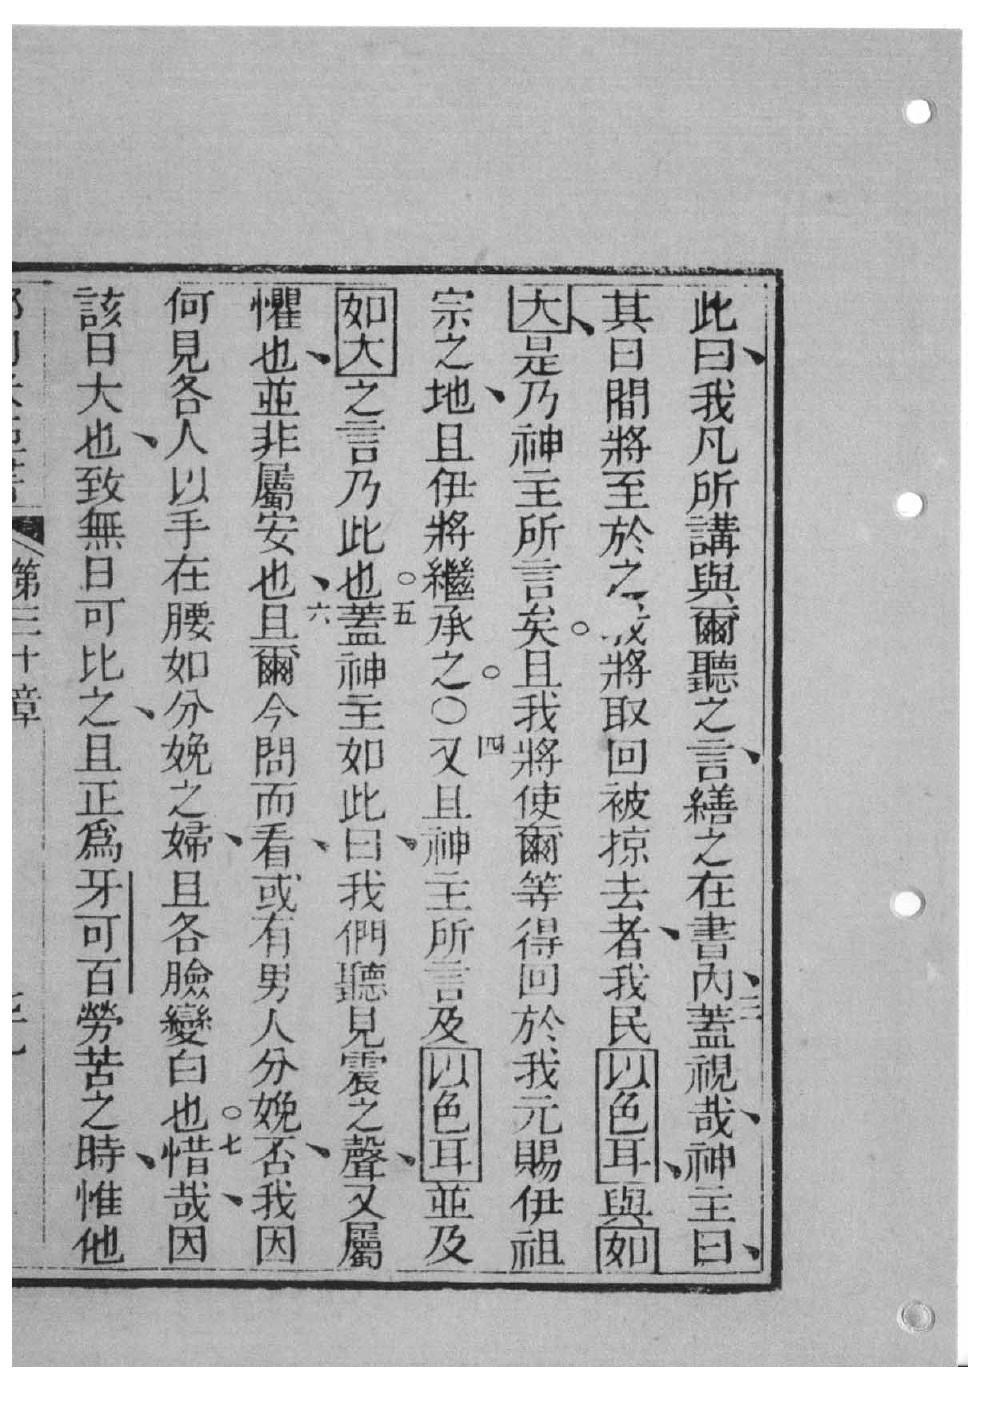 此曰我凡所講與爾聽之言繕之在書內三蓋視哉神主曰
其日間將至於之我將取回被掠去者我民以色耳與如
大是乃神主所言矣且我將使爾等得回於我元賜伊祖
宗之地且伊將繼承之〇四又且神主所言及以色耳並及
如大之言乃此也五蓋神主如此曰我們聽見震之聲又屬
懼也並非屬安也六且爾今問而看或有男人分娩否我因
何見各人以手在腰如分娩之婦且各臉變白也七惜哉因
該日大也致無日可比之且正為牙可百勞苦之時惟他
第三十章